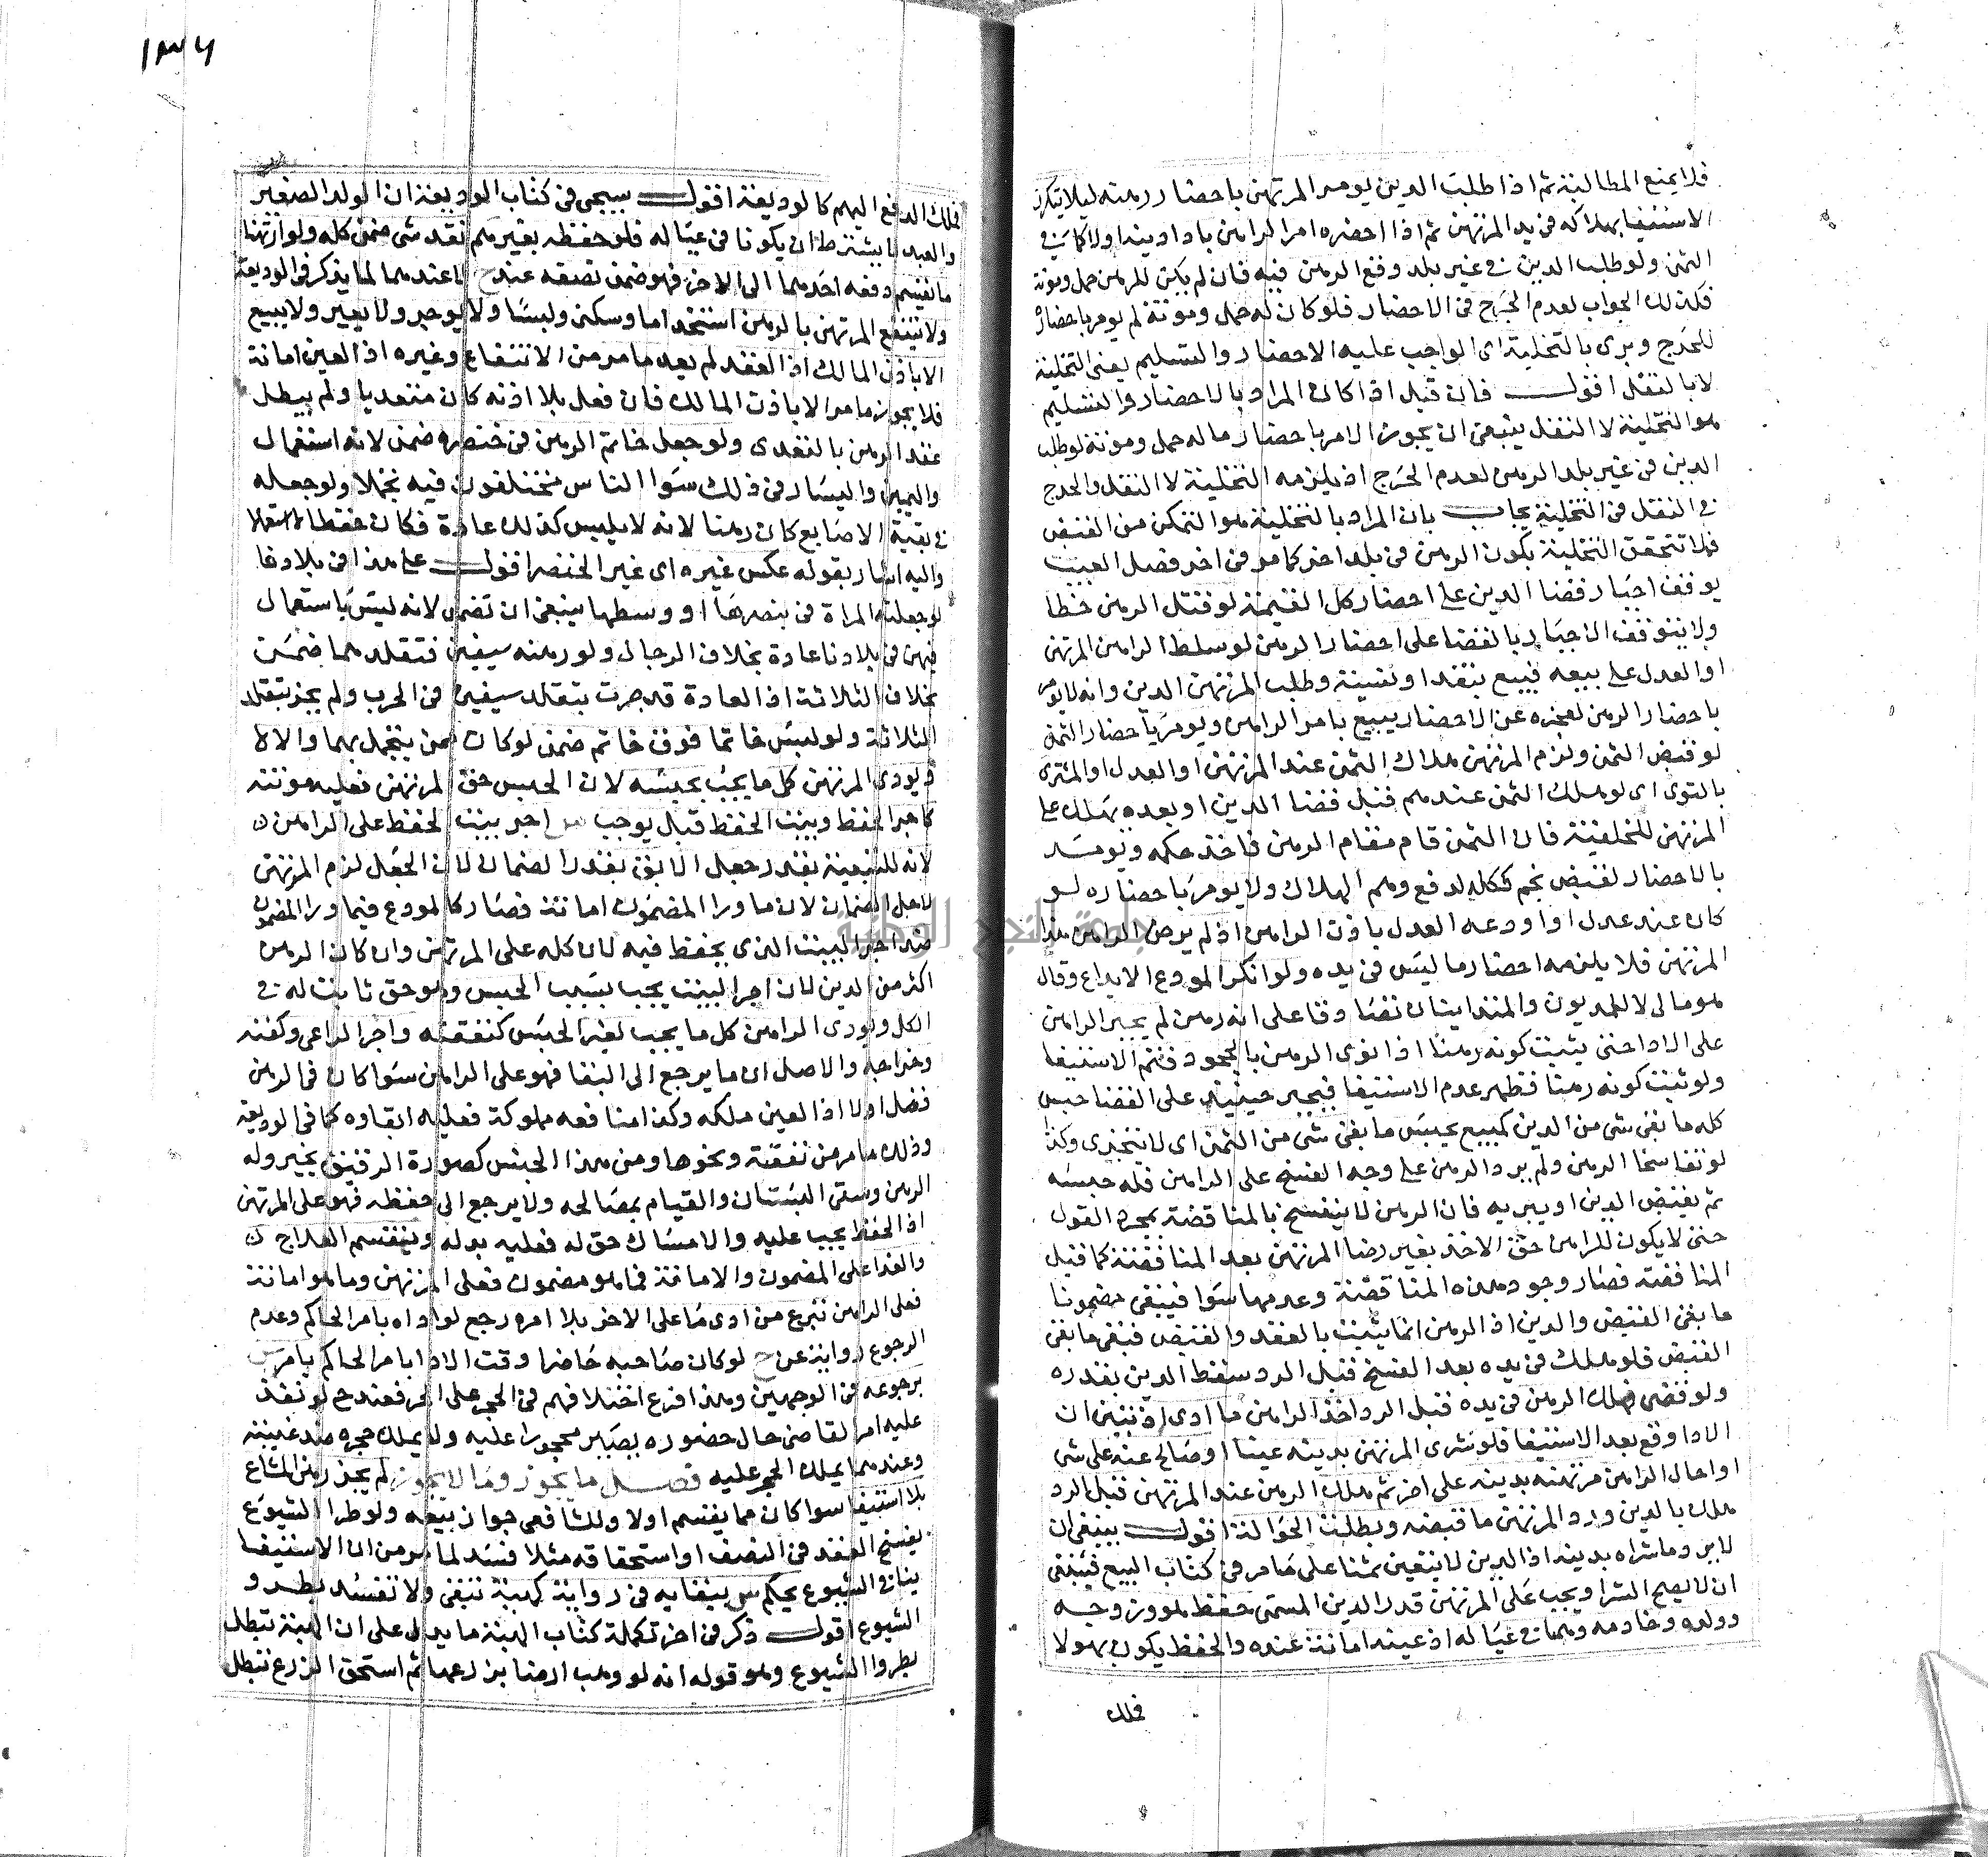 فلا يمنع المطالبة ثم اذا طلب الدين يومر المرتهن باحضار رهنه ليلا يتكرر
الاستيفا بهلاكه في يد المرتهن ثم اذا احضره امر الراهن باداء دينه اولا كما في
الثمن ولو طلب الدين في غير بلد وقع الرهن فيه فان لم يكن للرهن حمل ومونة
فكذلك الجواب لعدم الحرج في الاحضار فلو كان له حمل ومونة لم يومر باحضاره
للحرج وبرى بالتخلية اى الواجب عليه الاحضار والتسليم يعنى التخلية
لا بالنقل اقول فان قيل اذا كان المراد بالاحضار والتسليم
هو التخلية لا النقل ينبغى ان يجوز الامر باحضار ما له حمل ومونة لو طلب
الدين في غير بلد الرهن لعدم الحرج اذ يلزمه التخلية لا النقل والحرج
في النقل في التخلية يجاب بان المراد بالتخلية هو التمكن من القبض
فلا تتحقق التخلية بكون الرهن في بلد اخر كما مر في اخر فصل العيب
يوقف اجبار قضا الدين على احضار كل القيمة لو قتل الرهن خطا
ولا يتوقف الاجبار بالقضا على احضار الرهن لو سلط الراهن المرتهن
او العدل على بيعه فبيع بنقد او نسية وطلب المرتهن الدين وانه لا يومر
باحضار الرهن لعجزه عن الاحضار يبيع بامر الراهن ويومر باحضار الثمن
لو قبض الثمن ولزم المرتهن هلاك الثمن عند المرتهن او العدل او المشترى
بالتوى اى لو هلك الثمن عندهم قبل قضا الدين او بعده يهلك على
المرتهن للخلفية فان الثمن قام مقام الرهن فاخذ حكمه ويومر
بالاحضار لقبض نجم ككله لدفع وهم الهلاك ولا يومر باحضاره لو
كان عند عدل او اودعه العدل باذن الراهن اذ لم يرض الراهن
المرتهن فلا يلزمه احضار ما ليس في يده ولو انكر المودع الايداع وقال
هو مالى لا للمديون والمتداينان تصادقا على انه رهن لم يجبر الراهن
على الادا حتى يثبت كونه رهنا اذا توى الرهن بالجحود فتم الاستيفا
ولو ثبت كونه رهنا فظهر عدم الاستيفا فيجبر حينئذ على القضا حبس
كله ما بقى شى من الدين كمبيع يحبس ما بقى شى من الثمن اى لا يتجزى وكذا
لو تفاسخا الرهن ولم يرد الرهن على وجه الفسخ على الراهن فله حبسه
ثم يقبض الدين او يبريه فان الرهن لا ينفسخ بالمناقضة بمجرد القول
حتى لا يكون للراهن حق الاخذ بغير رضا المرتهن بعد المناقضة كما قبل
المناقضة فصار وجود هذه المناقضة وعدمها سوا فيبقى مضمونا
ما بقى القبض والدين اذ الرهن انما يثبت بالعقد والقبض فبقى ما بقى
القبض فلو هلك في يده بعد الفسخ قبل الرد سقط الدين بقدره
ولو قضى فهلك الرهن في يده قبل الرد اخذ الراهن ما ادى اذ تبين ان
الادا وقع بعد الاستيفا فلو شرى المرتهن بدينه عينا او صالح عنه على شى
او احال الراهن مرتهنه بدينه على اخر ثم هلك الرهن عند المرتهن قبل الرد
هلك بالدين ورد المرتهن ما قبضه وبطلت الحوالة اقول ينبغى ان
لا يرد ما شراه بدينه اذ الدين لا يتعين ثمنا على ما مر في كتاب البيع فينبغى
ان لا يصح الشرا ويجب على المرتهن قدر الدين المسمى حفظ هو وزوجه
وولده وخادمه وهما في عياله اذ عينه امانة عنده والحفظ يكون بهولا
فملك
١٣٦
فملك الدفع اليهم كالوديعة اقول سيجى في كتاب الوديعة ان الولد الصغير
والعبد لا يشترط ان يكونا في عياله فلو حفظه بغيرهم تعد شى ضمن كله ولو ارتهنا
ما يقسم دفعه احدهما الى الاخر فهو ضمن نصفه عند ح لا عندهما لما يذكر في الوديعة
ولا ينتفع المرتهن بالرهن استخداما وسكنى ولبسا ولا يوجر ولا يعير ولا يبيع
الا باذن المالك اذ العقد لم يعد ما مر من الانتفاع وغيره اذ العين امانة
فلا يجوز ما مر الا باذن المالك فان فعل بلا اذنه كان متعديا ولم يبطل
عقد الرهن بالتعدى ولو جعل خاتم الرهن في خنصره ضمن لانه استعمال
واليمين واليسار في ذلك سوا الناس مختلفون فيه تجملا ولو جعله
في بقية الاصابع كان رهنا لانه لا يلبس كذلك عادة فكان حفظا لا استعمالا
واليه اشار بقوله عكس غيره اى غير الخنصر اقول على هذا في بلادنا
لو جعلته المراة في بنصرها او وسطها ينبغى ان تضمن لانه ليس باستعمال
فيهن في بلادنا عادة بخلاف الرجال ولو رهنه سيفين فتقلدهما ضمن
بخلاف الثلاثة اذ العادة قد جرت بتقلد سيفين في الحرب ولم يجز بتقلد
الثلاثة ولو لبس خاتما فوق خاتم ضمن لو كان ممن يتجمل بهما والا لا
ويودى المرتهن كل ما يجب بحبسه لان الحبس حق المرتهن فعليه مونته
كاجر الحفظ وبيت الحفظ قيل يوجب اجر بيت الحفظ على الراهن
لانه للتبعية بقدر جعل الابق بقدر الضمان لان الجعل لزم المرتهن
لاجل الضمان لان ما ورا المضمون امانة فصار كالمودع فيما ورا المضمون
ضد اجر البيت الذى يحفظ فيه لان كله على المرتهن وان كان الرهن
اكثر من الدين لان اجر البيت يجب بسبب الحبس وهو حق ثابت له في
الكل ويودى الراهن كل ما يجب لغير الحبس كنفقته واجر الراعى وكفنه
وخراجه والاصل ان ما يرجع الى البقا فهو على الراهن سوا كان في الرهن
فضل اولا اذ العين ملكه وكذا منافعه مملوكة فعليه ابقاوه كما في الوديعة
وذلك ما مر من نفقته ونحوها ومن هذا الجنس كصورة الرقيق بخير وله
الرهن وسقى البستان والقيام بمصالحه ولا يرجع الى حفظه فهو على المرتهن
اذ الحفظ يجب عليه والامساك حق له فعليه بدله وينقسم العلاج
والفدا على المضمون والامانة فما هو مضمون فعلى المرتهن وما هو امانة
فعلى الراهن تبرع من ادى ما على الاخر بلا امره رجع لو اداه بامر الحاكم وعدم
الرجوع رواية عن ح لو كان صاحبه حاضرا وقت الادا بامر الحاكم يامر س
برجوعه في الوجهين وهذا فرع اختلافهم في الحجر على الحر فعند ح لو نفذ
عليه امر القاضى حال حضوره يصير محجورا عليه ولا يملك حجره ضد غيبته
وعندهما يملك الحجر عليه فصل ما يجوز وما لا يجوز لم يجز رهن المشاع
بلا استيفا سوا كان مما يقسم اولا ولشافعى جواز بيعه ولو طرا الشيوع
بفسخ العقد في النصف او استحقاقه مثلا فسد لما مر من ان الاستيفا
ينافي الشيوع يحكم س ببقايه في رواية كهبة تبقى ولا تفسد بطرو
الشيوع اقول ذكر في اخر تكملة كتاب الهبة ما يدل على ان الهبة تبطل
بطروا الشيوع وهو قوله انه لو وهب ارضا بزرعها ثم استحق الزرع تبطل